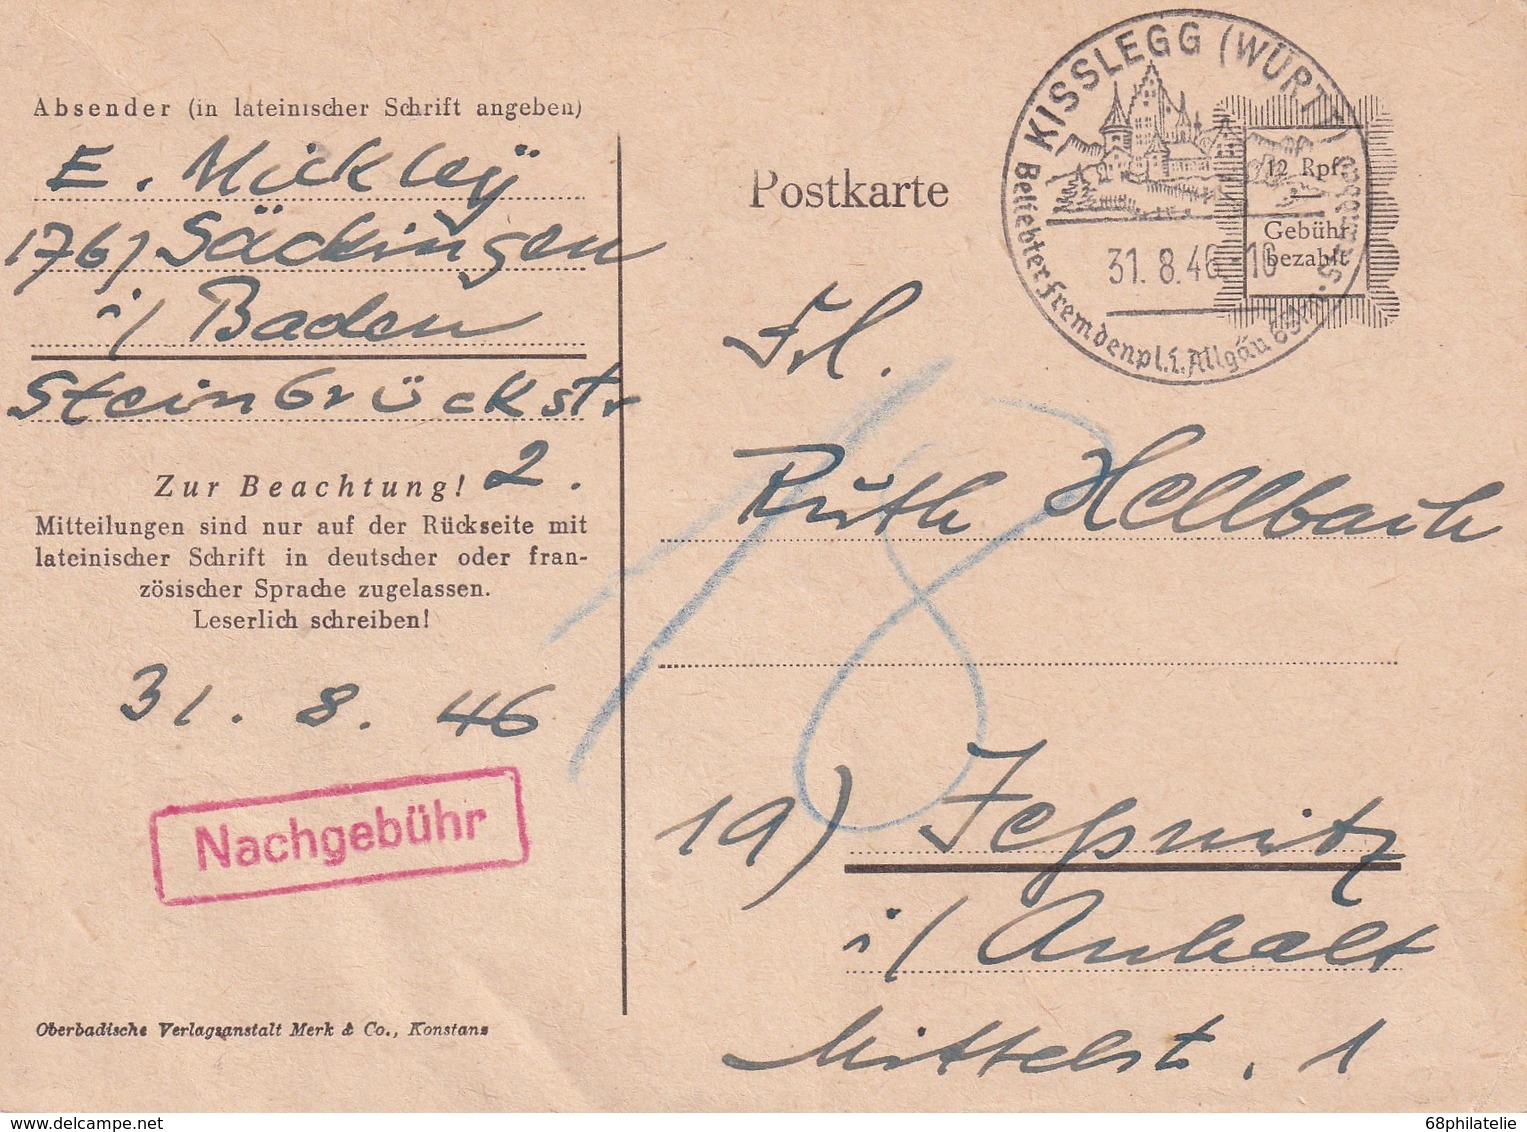 Absender (in lateinischer Schrift angeben)
E. Mickley
17b) Säckingen
i/ Baden
Steinbrückstr
2.
Zur Beachtung!
Mitteilungen sind nur auf der Rückseite mit
lateinischer Schrift in deutscher oder fran-
zösischer Sprache zugelassen.
Leserlich schreiben!
31. 8. 46
Nachgebühr
Oberbadische Verlagsanstalt Merk & Co., Konstanz
Postkarte
KISSLEGG (WÜRTT)
31. 8. 46
Beliebter Fremdenpl. i. Allgäu
12 Rpf.
Gebühr
bezahlt
18
Frl.
Ruth Hellbach
19) Jeßnitz
i/ Anhalt
Mittelst. 1
68philatelie